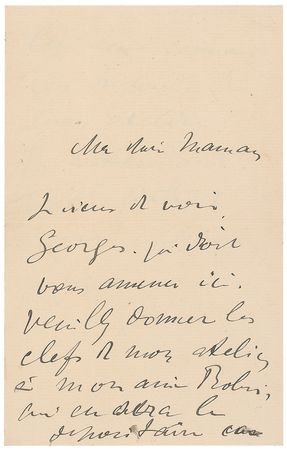 Ma chère Maman,
Je viens de voir
Georges. qui doit
vous amener ici.
veuillez donner les
clefs de mon atelier
à mon ami Robin,
qui en sera le
dépositaire